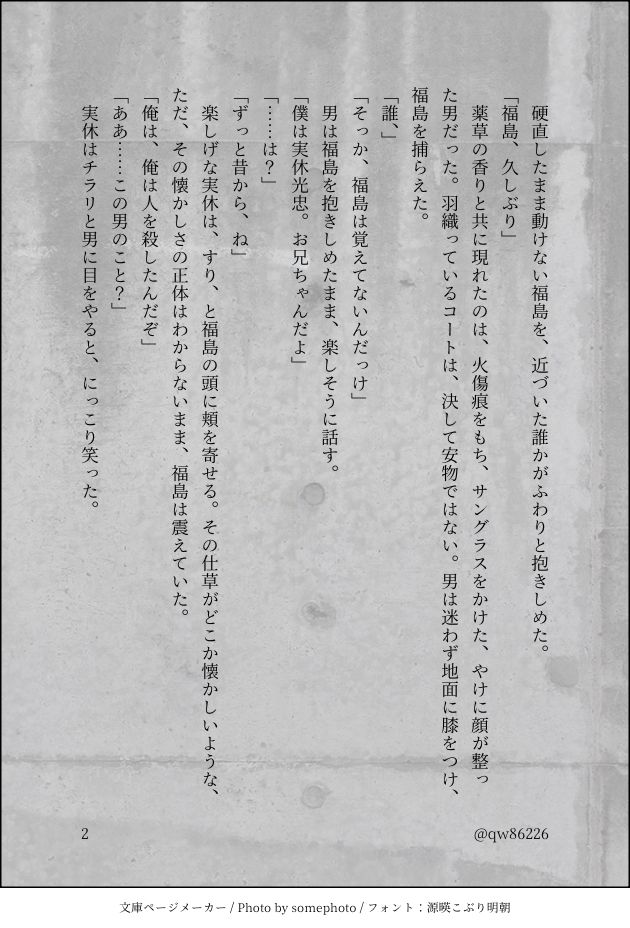 硬直したまま動けない福島を、近づいた誰かがふわりと抱きしめた。
「福島、久しぶり」
薬草の香りと共に現れたのは、火傷痕をもち、サングラスをかけた、やけに顔が整っ
た男だった。羽織っているコートは、決して安物ではない。男は迷わず地面に膝をつけ、
福島を捕らえた。
「誰、」
「そっか、福島は覚えてないんだっけ」
男は福島を抱きしめたまま、楽しそうに話す。
「僕は実休光忠。お兄ちゃんだよ」
「……は？」
「ずっと昔から、ね」
楽しげな実休は、すり、と福島の頭に頬を寄せる。その仕草がどこか懐かしいような、
ただ、その懐かしさの正体はわからないまま、福島は震えていた。
「俺は、俺は人を殺したんだぞ」
「ああ……この男のこと？」
実休はチラリと男に目をやると、にっこり笑った。
2
@qw86226
文庫ページメーカー / Photo by somephoto / フォント：源暎こぶり明朝